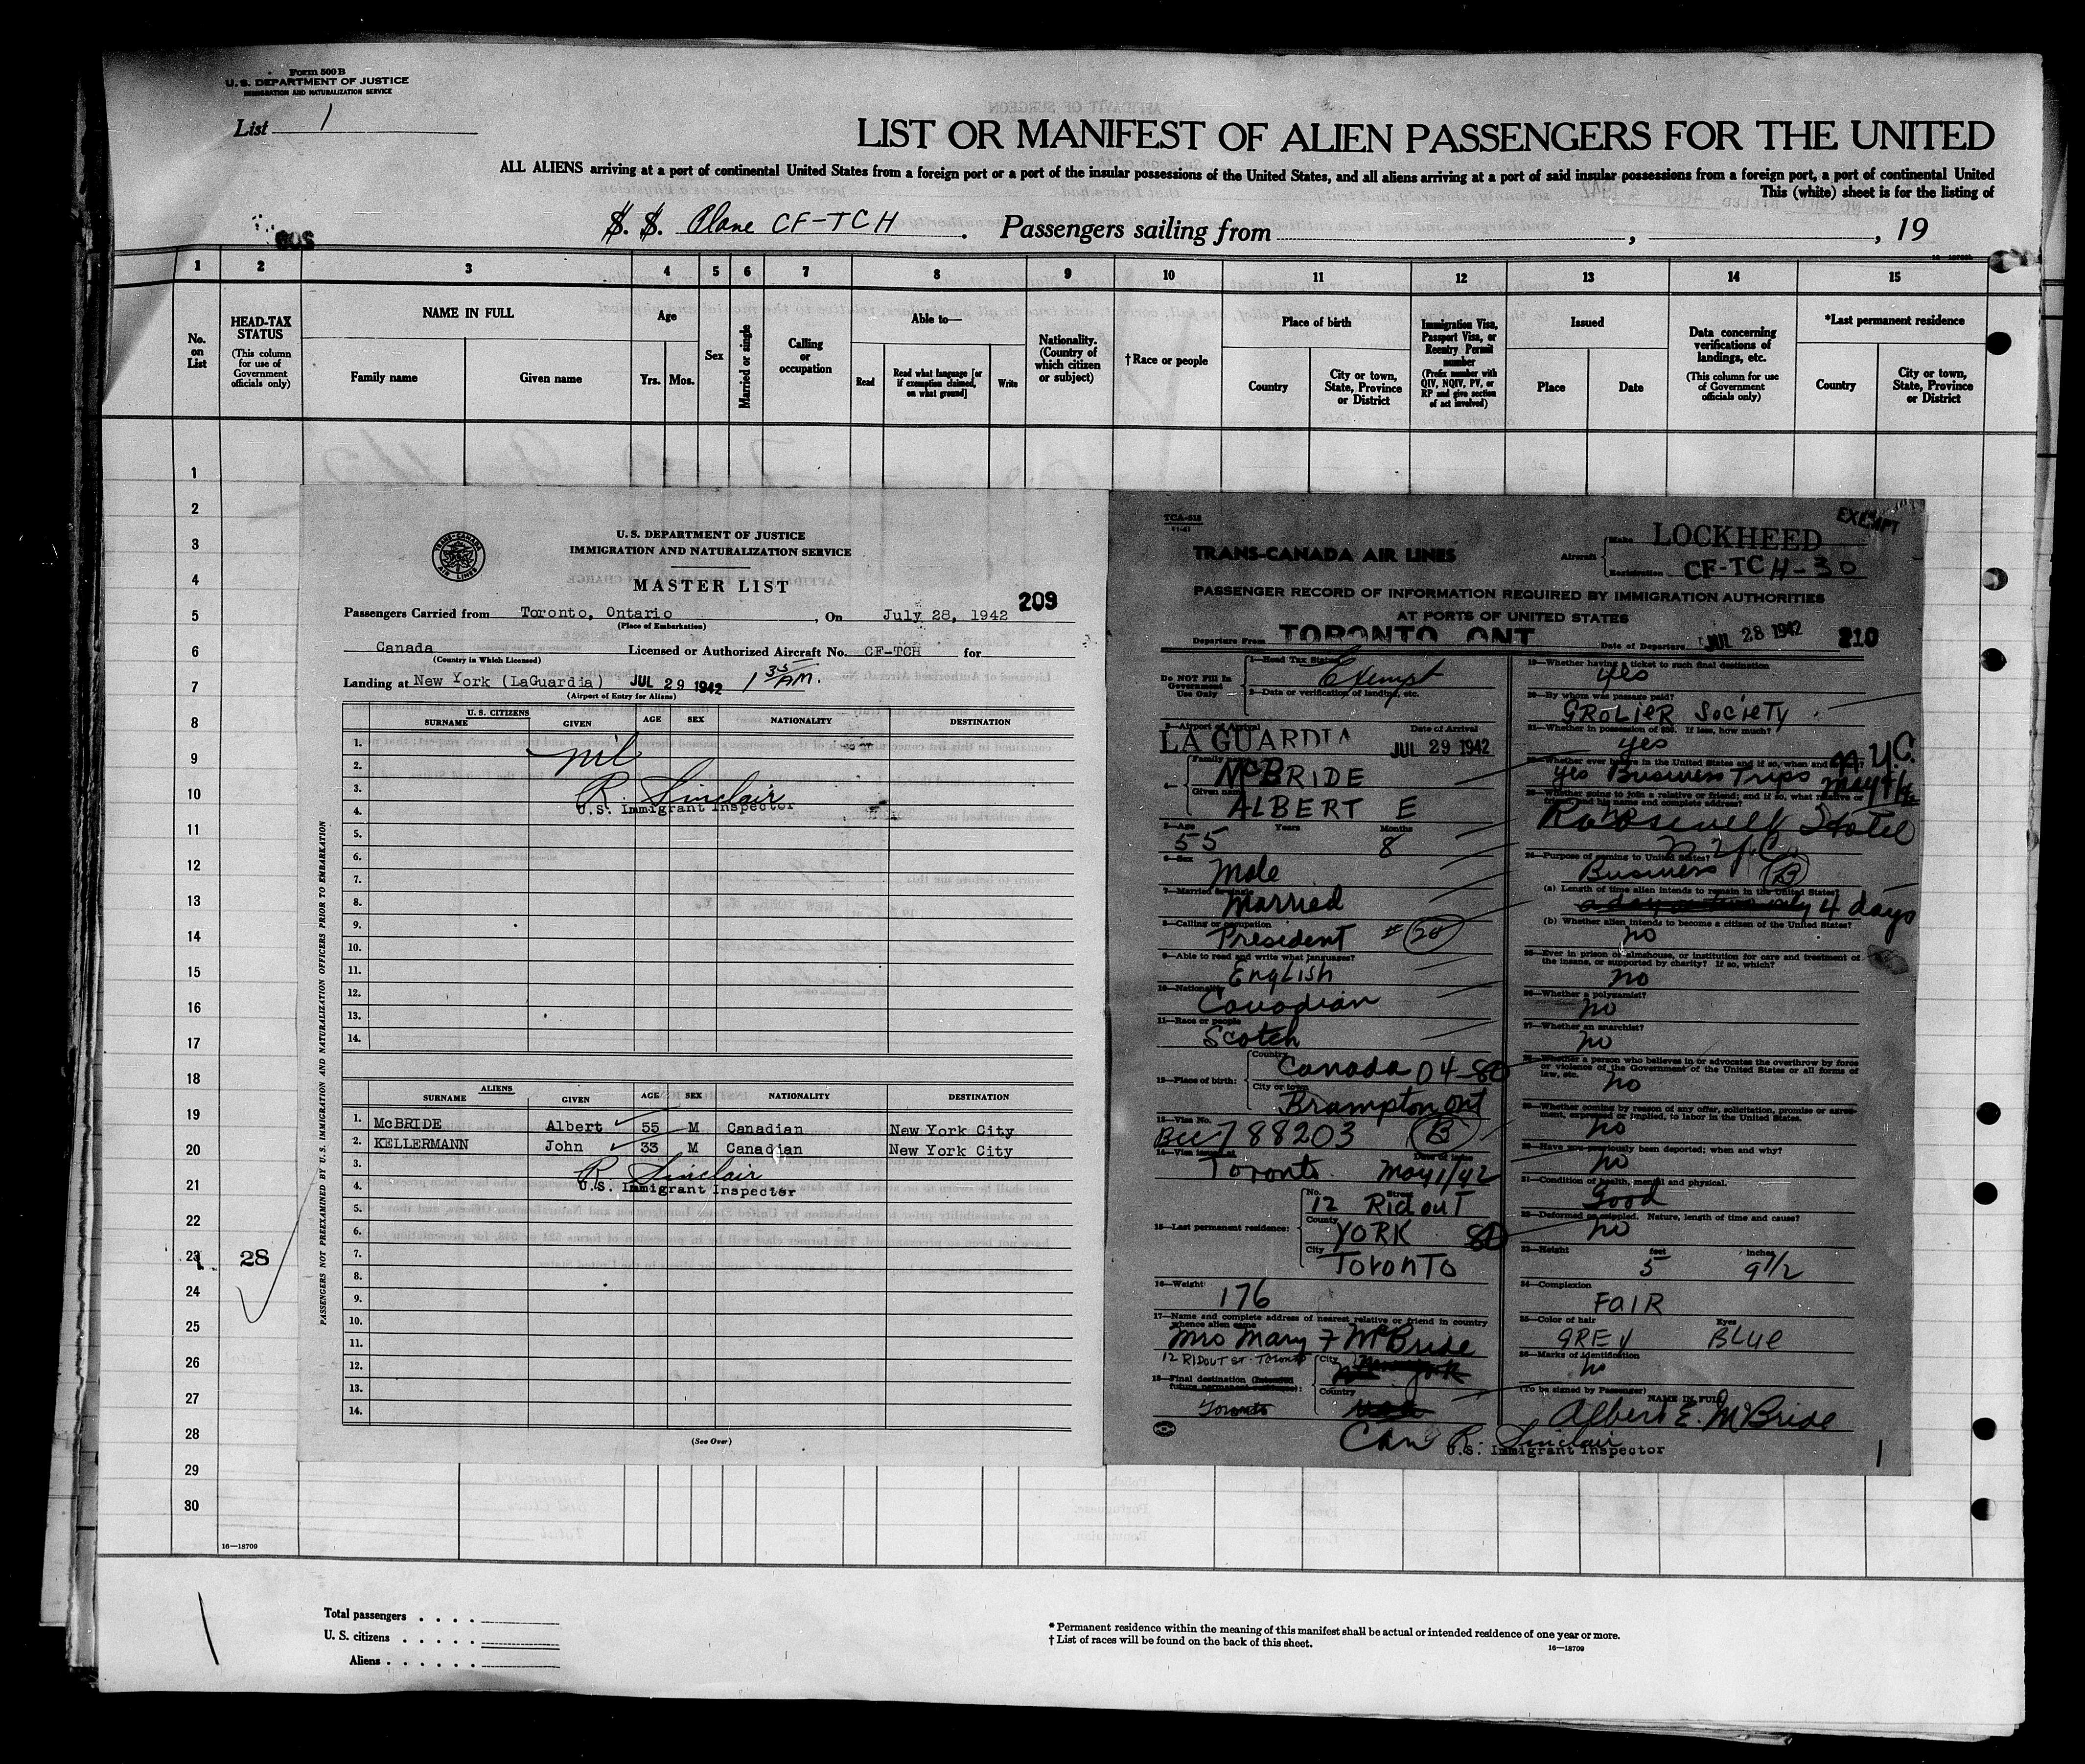 Form 500 B
U. S. DEPARTMENT OF JUSTICE
IMMIGRATION AND NATURALIZATION SERVICE
List 1
LIST OR MANIFEST OF ALIEN PASSENGERS FOR THE UNITED
ALL ALIENS arriving at a port of continental United States from a foreign port or a port of the insular possessions of the United States, and all aliens arriving at a port of said insular possessions from a foreign port, a port of continental United
This (white) sheet is for the listing of
S. S. Plane CF-TCH. Passengers sailing from , , 19
1 2 3 4 5 6 7 8 9 10 11 12 13 14 15
No. on List
HEAD-TAX STATUS
(This column for use of Government officials only)
NAME IN FULL
Family name
Given name
Age
Yrs. Mos.
Sex
Married or single
Calling or occupation
Able to—
Read
Read what language [or if exemption claimed, on what ground]
Write
Nationality. (Country of which citizen or subject)
† Race or people
Place of birth
Country
City or town, State, Province or District
Immigration Visa, Passport Visa, or Reentry Permit number
(Prefix number with QIV, NQIV, PV, or RP and give section of act involved)
Issued
Place
Date
Data concerning verifications of landings, etc.
(This column for use of Government officials only)
*Last permanent residence
Country
City or town, State, Province or District
1
2
3
4
5
6
7
8
9
10
11
12
13
14
15
16
17
18
19
20
21
22
23
28
24
25
26
27
28
29
30
16—18709
TRANS-CANADA AIR LINES
U. S. DEPARTMENT OF JUSTICE
IMMIGRATION AND NATURALIZATION SERVICE
MASTER LIST
209
Passengers Carried from Toronto, Ontario, On July 28, 1942
(Place of Embarkation)
Canada Licensed or Authorized Aircraft No. CF-TCH for
(Country in Which Licensed)
Landing at New York (LaGuardia) JUL 29 1942 1 35 AM.
(Airport of Entry for Aliens)
PASSENGERS NOT PREEXAMINED BY U.S. IMMIGRATION AND NATURALIZATION OFFICERS PRIOR TO EMBARKATION
U. S. CITIZENS
SURNAME GIVEN AGE SEX NATIONALITY DESTINATION
1.
nil
2.
3.
R. Sinclair
U.S. Immigrant Inspector
4.
5.
6.
7.
8.
9.
10.
11.
12.
13.
14.
ALIENS
SURNAME GIVEN AGE SEX NATIONALITY DESTINATION
1. McBRIDE Albert 55 M Canadian New York City
2. KELLERMANN John 33 M Canadian New York City
3.
R. Sinclair
4.
U.S. Immigrant Inspector
5.
6.
7.
8.
9.
10.
11.
12.
13.
14.
(See Over)
TCA-518
11-41
EXEMPT
TRANS-CANADA AIR LINES
Aircraft
Make LOCKHEED
Registration CF-TCH-30
PASSENGER RECORD OF INFORMATION REQUIRED BY IMMIGRATION AUTHORITIES
AT PORTS OF UNITED STATES
Departure From TORONTO, ONT Date of Departure JUL 28 1942 210
Do NOT Fill In Government Use Only
1—Head Tax Status Exempt
2—Data or verification of landing, etc.
3—Airport of Arrival Date of Arrival
LA GUARDIA JUL 29 1942
4—
Family McBRIDE
Given name ALBERT E
5—Age Years Months
55 8
6—Sex
Male
7—Married or single
Married
8—Calling or occupation
President # 20
9—Able to read and write what languages?
English
10—Nationality
Canadian
11—Race or people
Scotch
12—Place of birth:
Country Canada 04-80
City or town Brampton Ont
13—Visa No.
BCC 788203 B
14—Visa issued at Date of Issue
Toronto May 1/42
15—Last permanent residence:
No. Street
12 Ridout
County YORK 80
City Toronto
16—Weight
176
17—Name and complete address of nearest relative or friend in country whence alien came
Mrs Mary F McBride
12 RIDOUT ST. TORONTO
18—Final destination (Intended future permanent residence):
City New York
Country USA
Toronto
Can
19—Whether having a ticket to such final destination
yes
20—By whom was passage paid?
GROLIER Society
21—Whether in possession of $50. If less, how much?
yes
22—Whether ever before in the United States and if so, when and
N.Y.C.
yes Business Trips
23—Whether going to join a relative or friend; and if so, what relative or friend and his name and complete address?
no
Roosevelt Hotel
N.Y.C.
24—Purpose of coming to United States?
Business B
(a) Length of time alien intends to remain in the United States?
a day or two only 4 days
(b) Whether alien intends to become a citizen of the United States?
no
25—Ever in prison or almshouse, or institution for care and treatment of the insane, or supported by charity? If so, which?
no
26—Whether a polygamist?
no
27—Whether an anarchist?
no
28—Whether a person who believes in or advocates the overthrow by force or violence of the Government of the United States or all forms of law, etc.
no
29—Whether coming by reason of any offer, solicitation, promise or agreement, expressed or implied, to labor in the United States.
no
30—Have you previously been deported; when and why?
no
31—Condition of health, mental and physical.
Good
32—Deformed or crippled. Nature, length of time and cause?
no
33—Height feet inches
5 9 1/2
34—Complexion
FAIR
35—Color of hair Eyes
GREY BLUE
36—Marks of identification
no
(To be signed by Passenger) NAME IN FULL
Albert E. McBride
R. Sinclair
U.S. Immigrant Inspector
1
Total passengers
U. S. citizens
Aliens
* Permanent residence within the meaning of this manifest shall be actual or intended residence of one year or more.
† List of races will be found on the back of this sheet.
16—18709